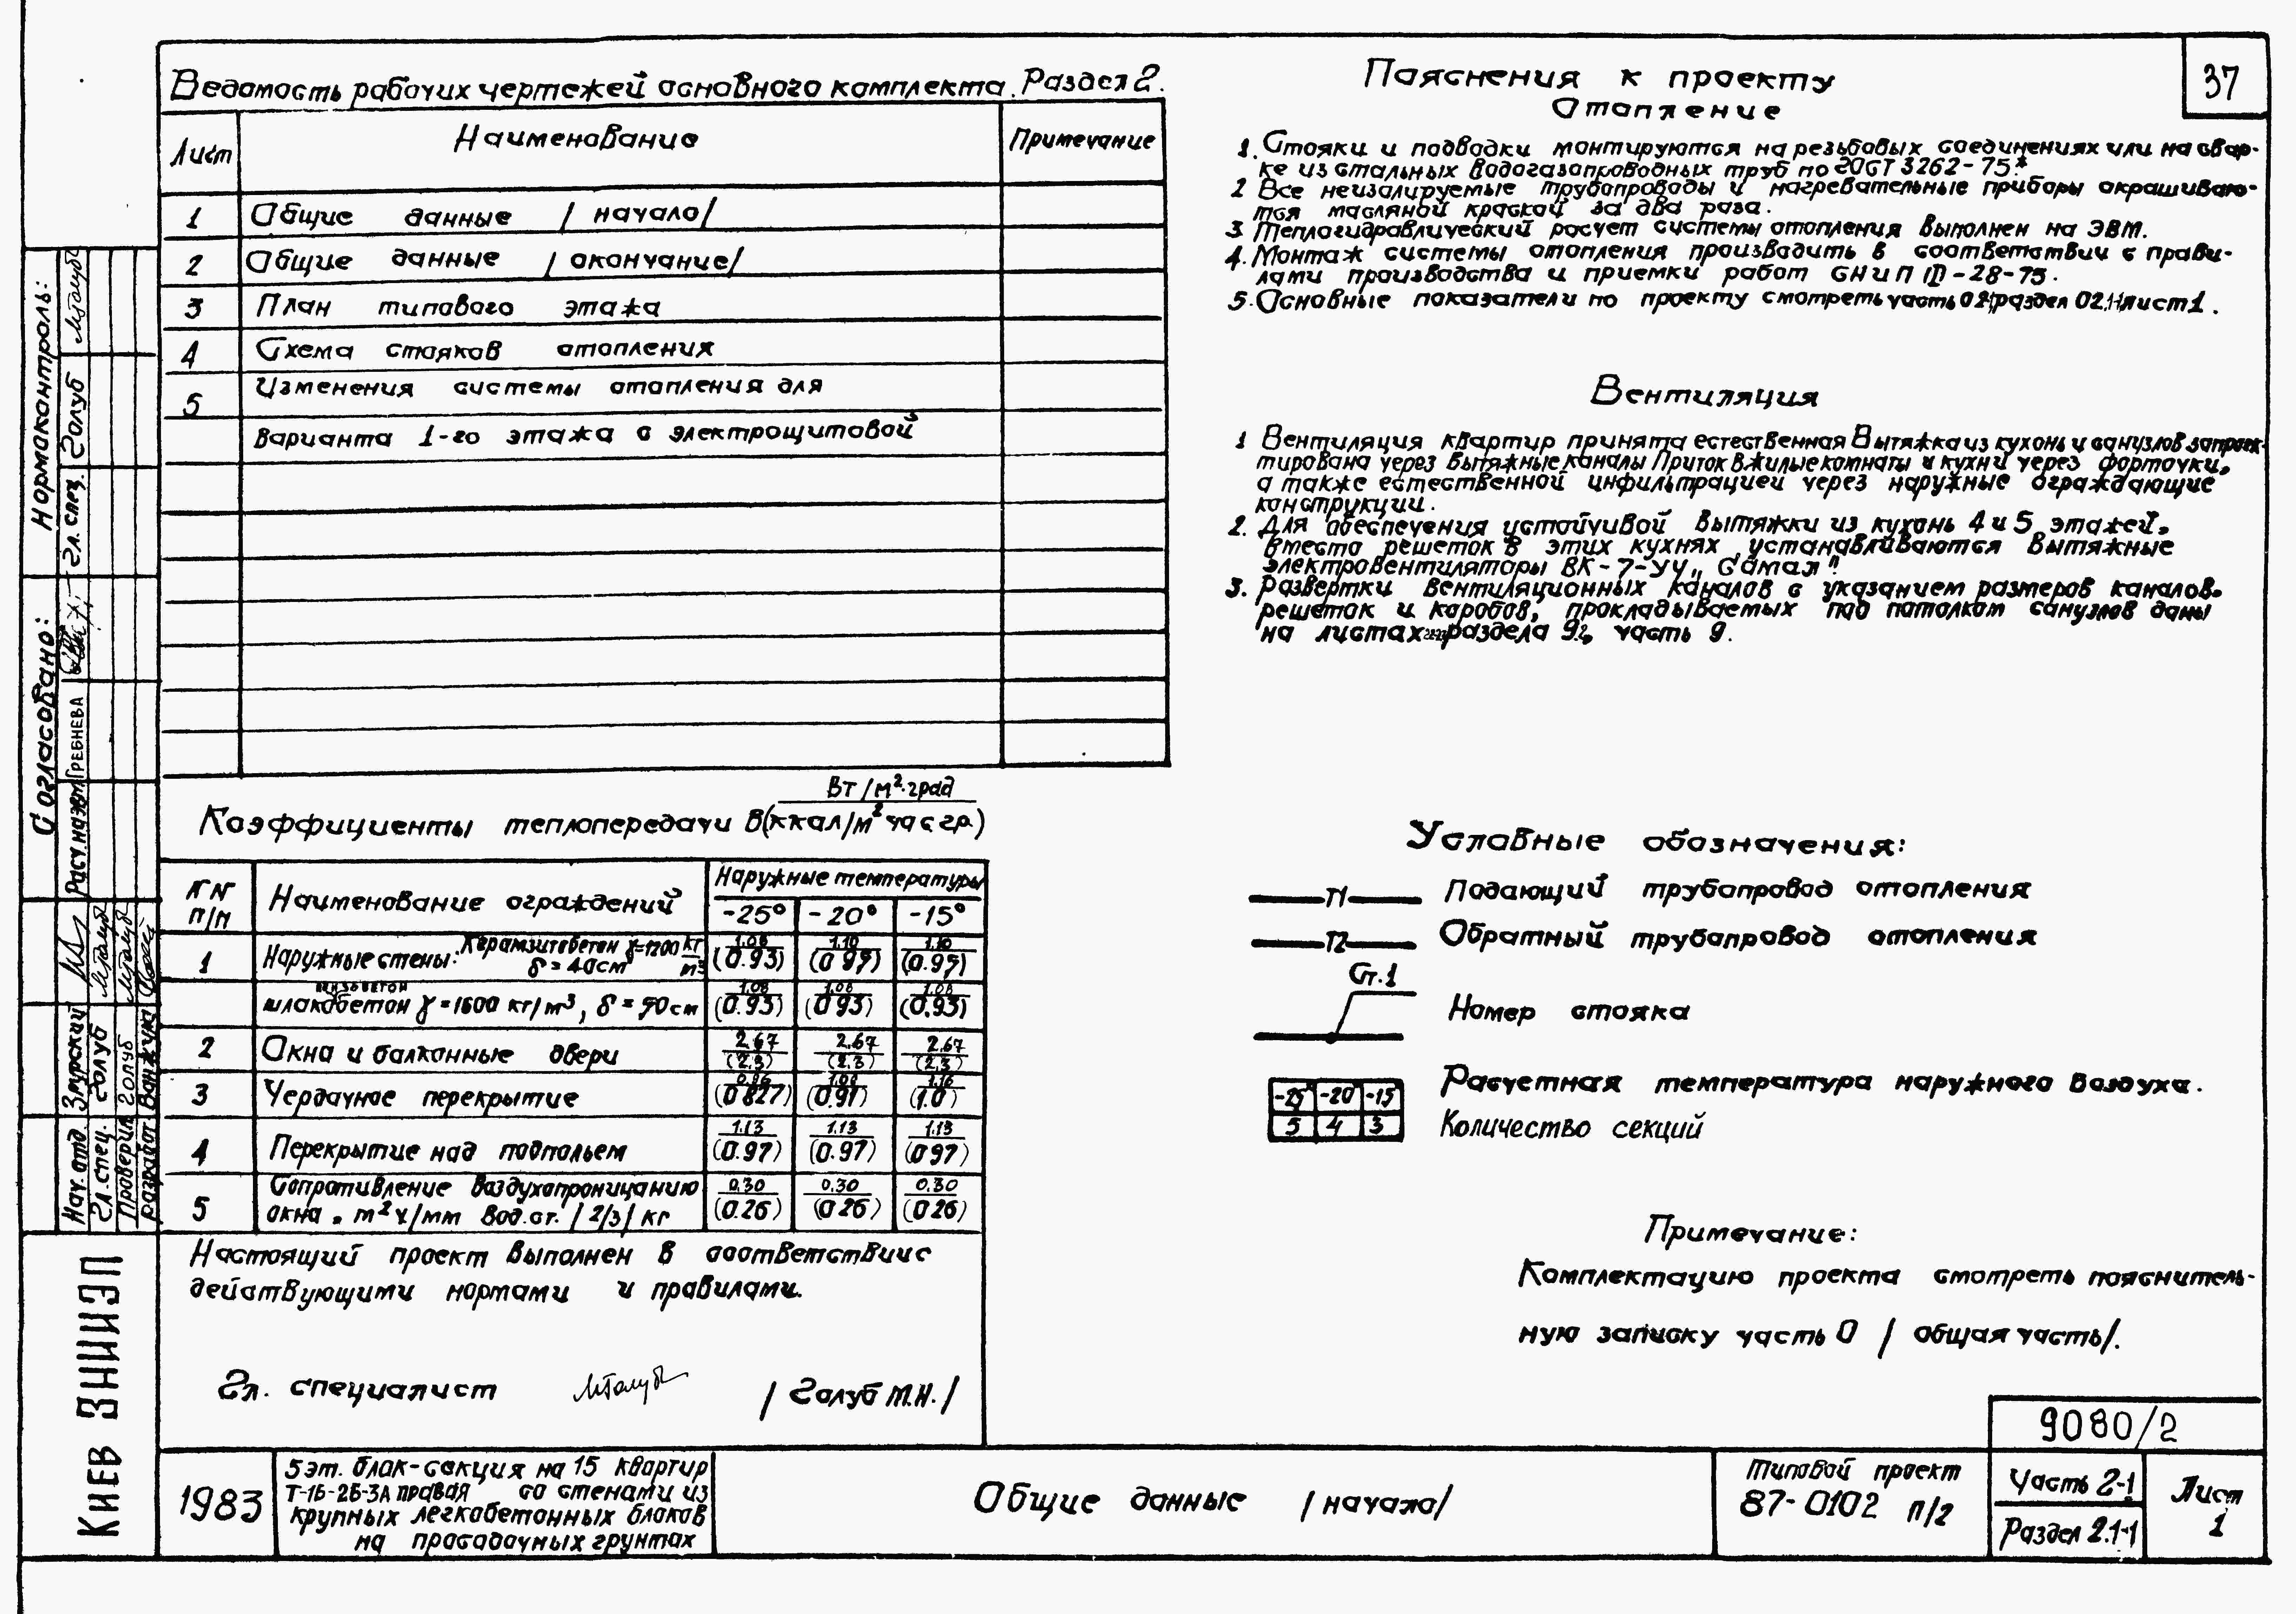 37
Ведомость рабочих чертежей основного комплекта. Раздел 2.
Лист Наименование Примечание
1 Общие данные /начало/
2 Общие данные /окончание/
3 План типового этажа
4 Схема стояков отопления
5 Изменения системы отопления для
варианта 1-го этажа с электрощитовой
Коэффициенты теплопередачи в Вт/м²·град
(ккал/м² час гр.)
NN п/п Наименование ограждений Наружные температуры
-25° -20° -15°
1 Наружные стены: Керамзитобетон γ=1200 кг/м³ δ=40см 1.08 (0.93) 1.10 (0.95) 1.10 (0.95)
шлакобетон γ=1600 кг/м³, δ=50см 1.08 (0.93) 1.08 (0.93) 1.08 (0.93)
2 Окна и балконные двери 2.67 (2.3) 2.67 (2.3) 2.67 (2.3)
3 Чердачное перекрытие 0.96 (0.827) (0.91) 1.16 (1.0)
4 Перекрытие над подпольем 1.13 (0.97) 1.13 (0.97) 1.13 (0.97)
5 Сопротивление воздухопроницанию
окна, м²ч/мм вод.ст. /2/3/ кг 0.30 (0.26) 0.30 (0.26) 0.30 (0.26)
Настоящий проект выполнен в соответствии с
действующими нормами и правилами.
Гл. специалист /Голуб М.Н./
Пояснения к проекту
Отопление
1. Стояки и подводки монтируются на резьбовых соединениях или на свар-
ке из стальных водогазопроводных труб по ГОСТ 3262-75*
2 Все неизолируемые трубопроводы и нагревательные приборы окрашиваю-
тся масляной краской за два раза.
3. Теплогидравлический расчет системы отопления выполнен на ЭВМ.
4. Монтаж системы отопления производить в соответствии с прави-
лами производства и приемки работ СНиП III-28-75.
5. Основные показатели по проекту смотреть часть раздел лист 1.
Вентиляция
1 Вентиляция квартир принята естественная Вытяжка из кухонь и санузлов запроек-
тирована через вытяжные каналы Приток в жилые комнаты и кухни через форточки,
а также естественной инфильтрацией через наружные ограждающие
конструкции.
2. Для обеспечения устойчивой вытяжки из кухонь 4 и 5 этажей,
вместо решеток в этих кухнях устанавливаются вытяжные
электровентиляторы ВК-7-УЧ „Самал"
3. Развертки вентиляционных каналов с указанием размеров каналов,
решеток и коробов, прокладываемых под потолком санузлов даны
на листах раздела 9.2, часть 9.
Условные обозначения:
Т1 Подающий трубопровод отопления
Т2 Обратный трубопровод отопления
Ст.1 Номер стояка
-25 -20 -15 Расчетная температура наружного воздуха.
5 4 3 Количество секций
Примечание:
Комплектацию проекта смотреть пояснитель-
ную записку часть 0 /общая часть/.
Нормоконтроль:
Гл. спец. Голуб
Согласовано:
Гребнева
Нач. отд. Згурский
Гл. спец. Голуб
Проверил Голуб
Разработ.
Киев ЗНИИЭП
1983
5 эт. блок-секция на 15 квартир
Т-1Б-2Б-3А правая со стенами из
крупных легкобетонных блоков
на просадочных грунтах
Общие данные /начало/
Типовой проект
87-0102 п/2
9080/2
Часть 2-1
Раздел 2.1-1
Лист
1